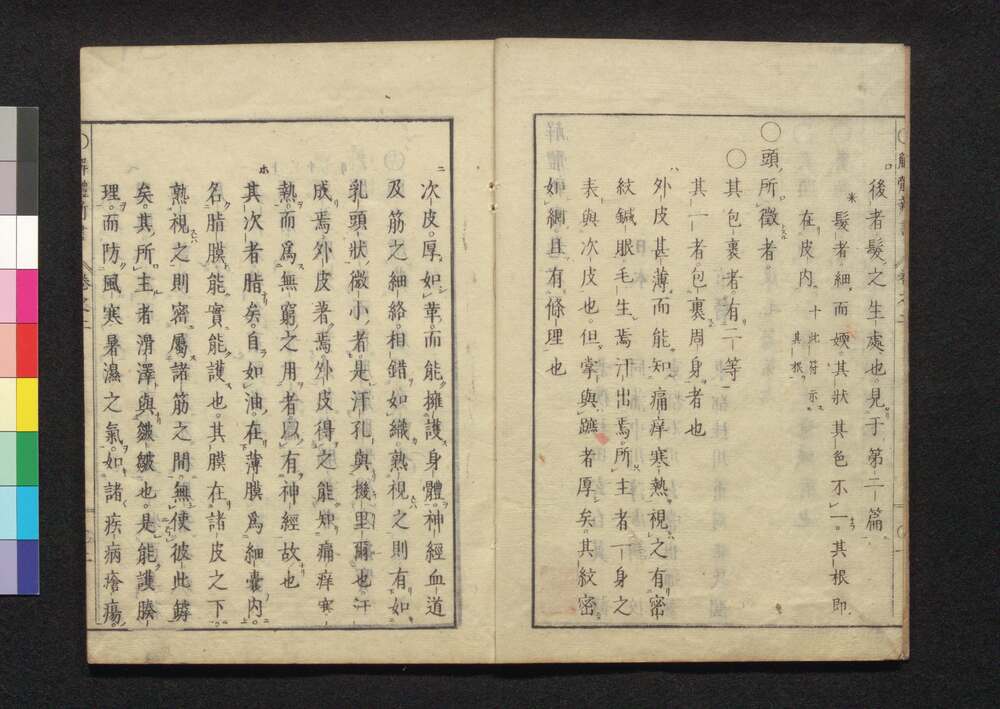 後者髮之生處也見于第二篇
髮者細而㛐其狀其色不一其根即
在皮内十此符示其根
○頭所徵者
○其包裹者有二等
其一者包裹周身者也
外皮甚薄而能知痛痒寒熱視之有密
紋鍼眼毛生焉汗出焉所主者一身之
表與次皮也但掌與蹠者厚矣其紋密
如綢且有條理也
次皮厚如革而能擁護身體神經血道
及筋之細絡相錯如織熟視之則有如
乳頭狀微小者是汗孔與機里爾也汗
成焉外皮著焉外皮得之能知痛痒寒
熱而爲無窮之用者以有神經故也
其次者脂矣自如油在薄膜爲細囊内
名脂膜能實能護也其膜在諸皮之下
熟視之則密屬諸筋之間無使彼此
矣其所主者滑澤與皺皴也是能護腠
理而防風寒暑濕之氣如諸疾病瘡瘍